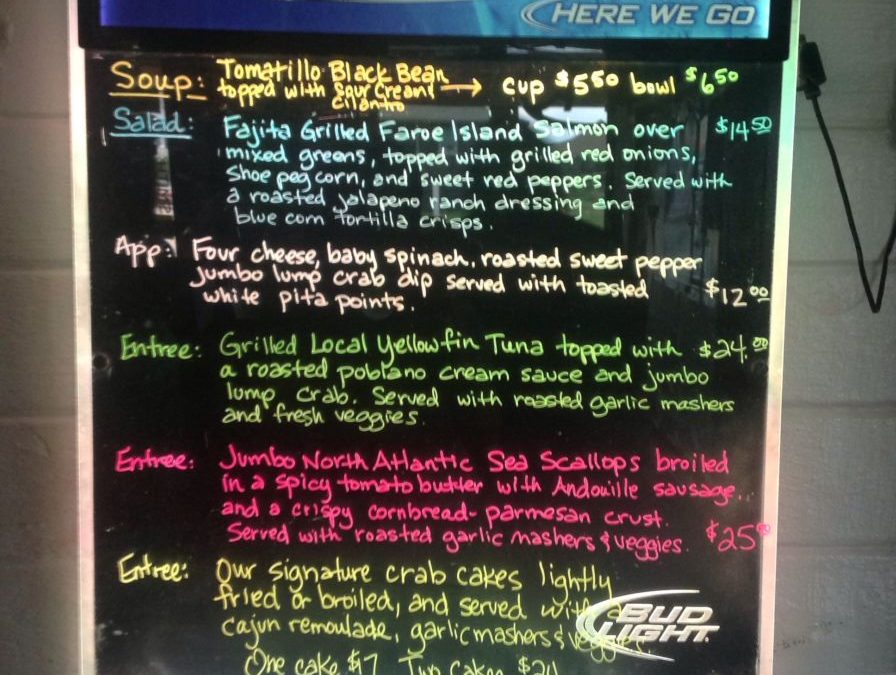 HERE WE GO
Soup: Tomatillo Black Bean
topped with sour cream → cup $5.50 bowl $6.50
cilantro
Salad: Fajita Grilled Faroe Island Salmon over $14.50
mixed greens, topped with grilled red onions,
Shoe peg corn, and sweet red peppers. Served with
a roasted jalapeno ranch dressing and
blue corn tortilla crisps.
App: Four cheese, baby spinach, roasted sweet pepper
jumbo lump crab dip served with toasted $12.00
white pita points.
Entree: Grilled Local Yellowfin Tuna topped with $24.00
a roasted poblano cream sauce and jumbo
lump crab. Served with roasted garlic mashers
and fresh veggies.
Entree: Jumbo North Atlantic Sea Scallops broiled
in a spicy tomato butter with Andouille sausage
and a crispy cornbread-parmesan crust.
Served with roasted garlic mashers & veggies. $25.00
Entree: Our signature crab cakes lightly
fried or broiled, and served with a
cajun remoulade, garlic mashers & veggies.
BUD
LIGHT
One cake $17 Two Cakes